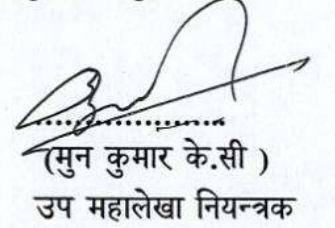 (मुन कुमार के.सी )
उप महालेखा नियन्त्रक